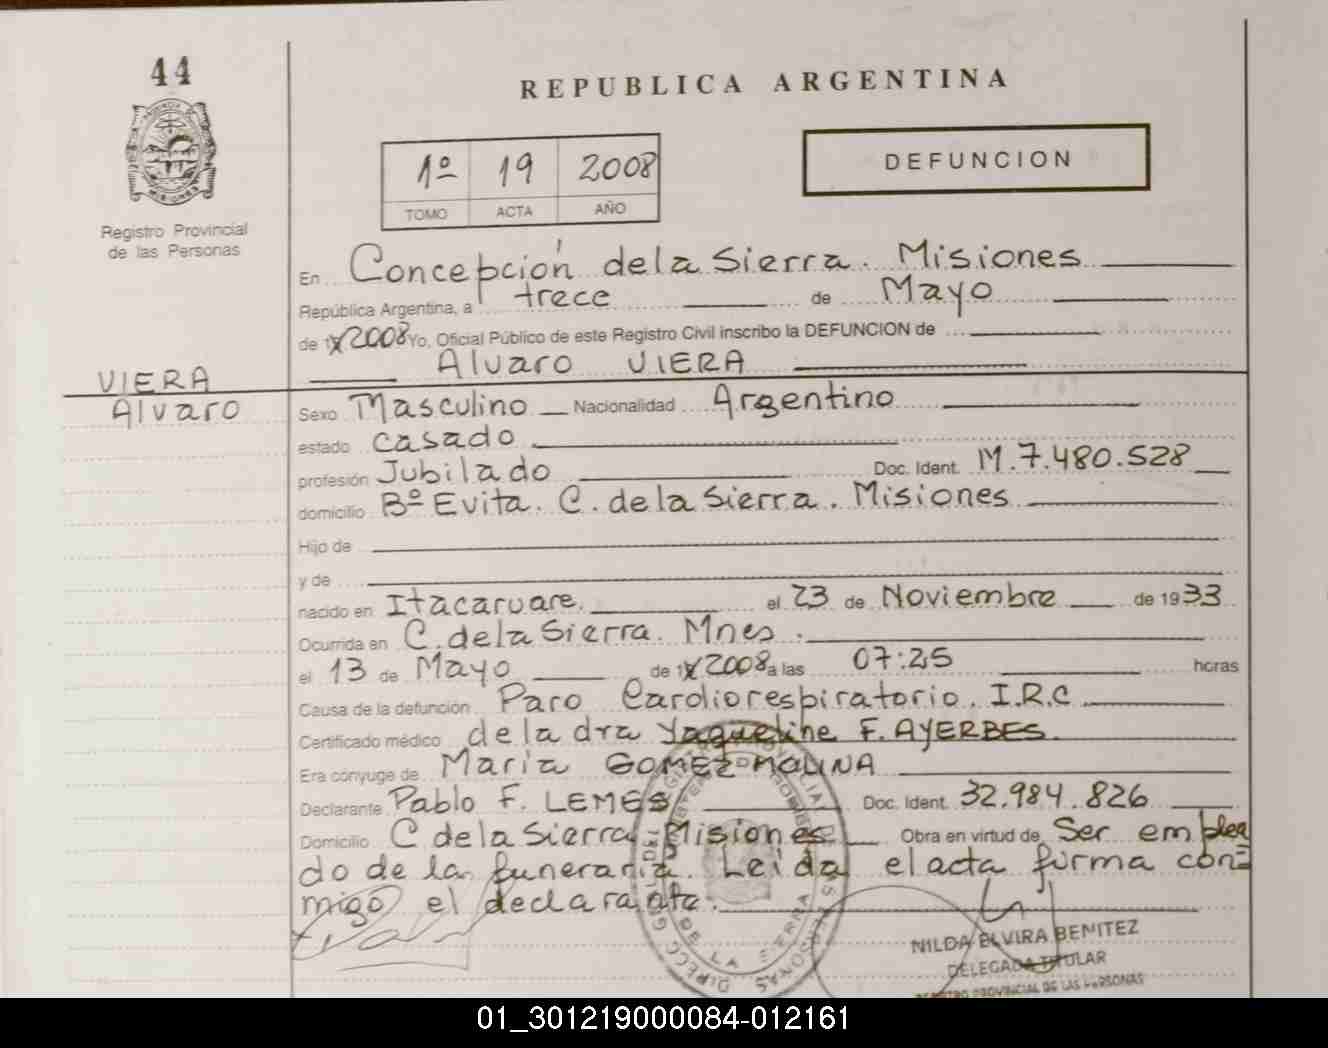 44
REPUBLICA ARGENTINA
1º 19 2008
TOMO ACTA AÑO
DEFUNCION
Registro Provincial
de las Personas
En Concepción de la Sierra. Misiones
República Argentina, a trece de Mayo
de 2008 Yo, Oficial Público de este Registro Civil inscribo la DEFUNCION de
Alvaro VIERA
VIERA
Alvaro
Sexo Masculino Nacionalidad Argentino
estado casado
profesión Jubilado Doc. Ident. M.7.480.528
domicilio Bº Evita. C. de la Sierra. Misiones
Hijo de
y de
nacido en Itacaruare. el 23 de Noviembre de 1933
Ocurrida en C. de la Sierra. Mnes.
el 13 de Mayo de 2008 a las 07:25 horas
Causa de la defunción Paro Cardiorespiratorio. I.R.C
Certificado médico de la dra Yaqueline F. AYERBES.
Era cónyuge de Maria GOMEZ MOLINA
Declarante Pablo F. LEMES Doc. Ident. 32.984.826
Domicilio C de la Sierra Misiones Obra en virtud de Ser emplea
do de la funeraria. Leida el acta firma con=
migo el declarante.
NILDA ELVIRA BENITEZ
DELEGADA TITULAR
REGISTRO PROVINCIAL DE LAS PERSONAS
01_301219000084-012161